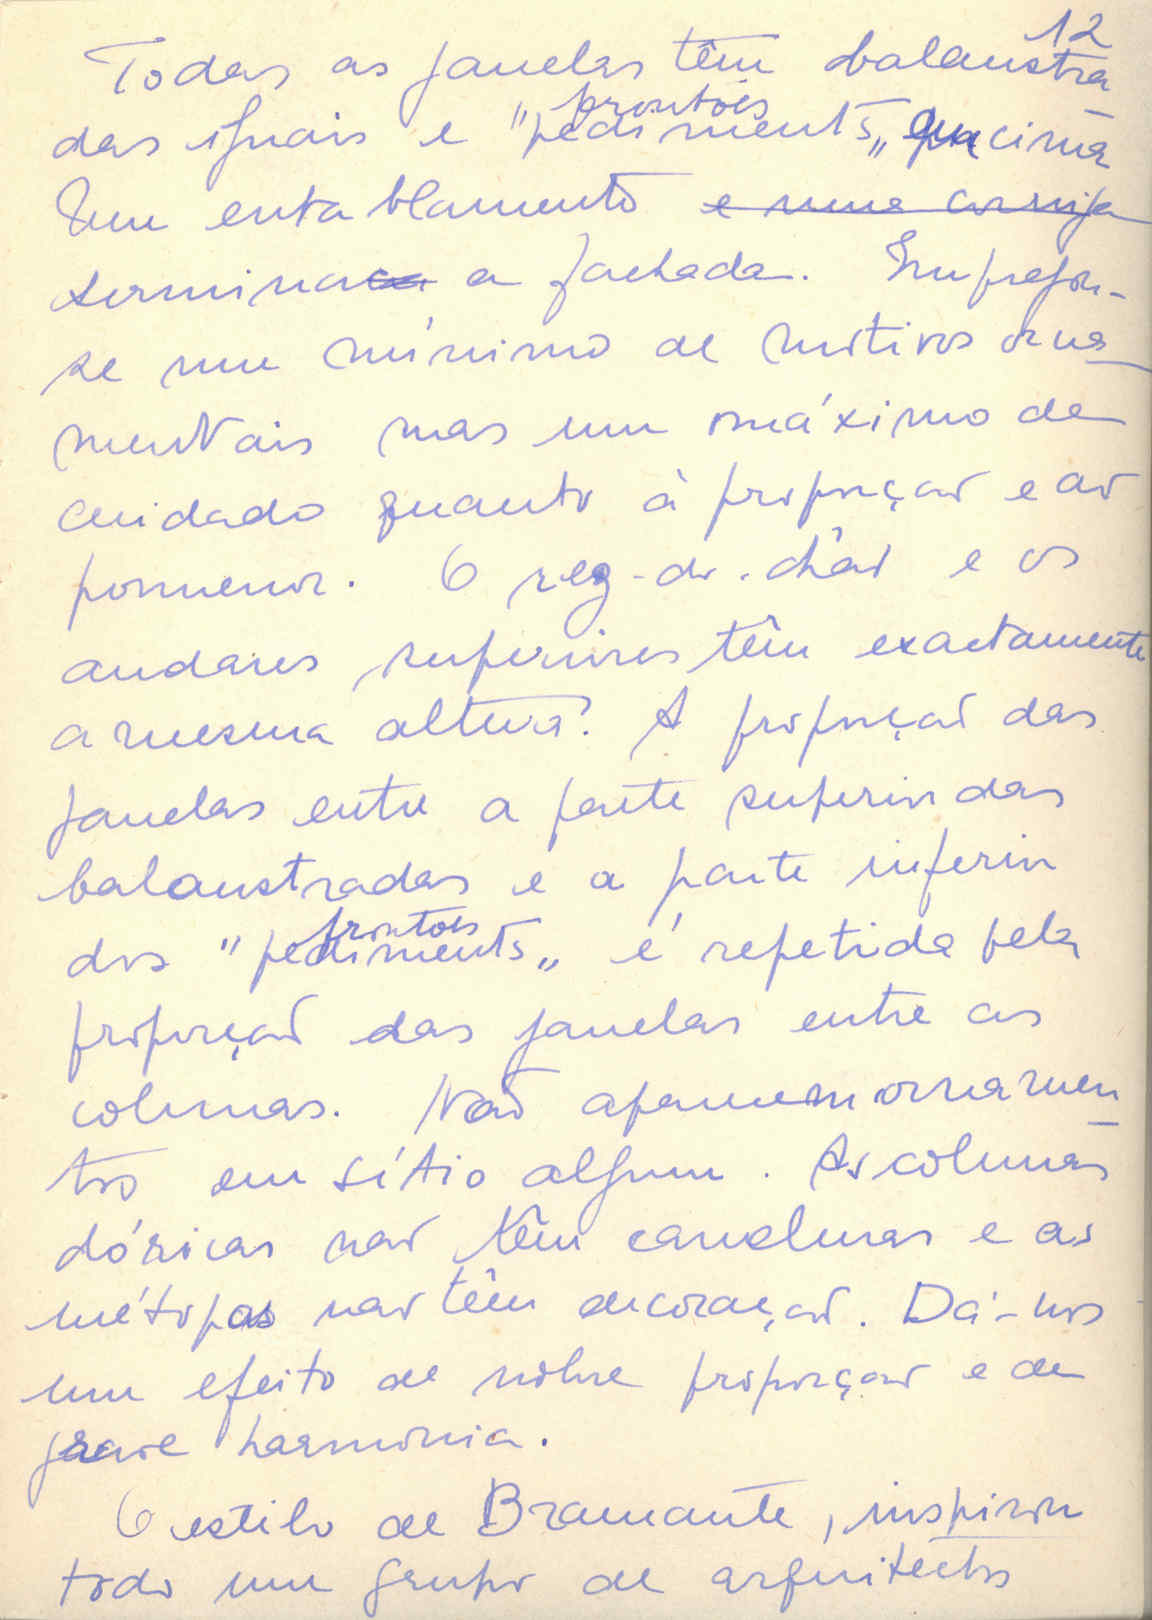 12
Todas as janelas têm balaustra-
das iguais e "pediments„ em cima
frontões
Um entablamento e uma cornija
termina a fachada. Empregou-
se um mínimo de motivos orna-
mentais mas um máximo de
cuidado quanto à proporção e ao
pormenor. O rez-do-chão e os
andares superiores têm exactamente
a mesma altura. A proporção das
janelas entre a parte superior das
balaustradas e a parte inferior
dos "pediments„ é repetida pela
frontões
proporção das janelas entre as
colunas. Não aparecem ornamen-
tos em sítio algum. As colunas
dóricas não têm caneluras e as
métopas não têm decoração. Dá-nos
um efeito de nobre proporção e de
grave harmonia.
O estilo de Bramante, inspirou
todo um grupo de arquitectos